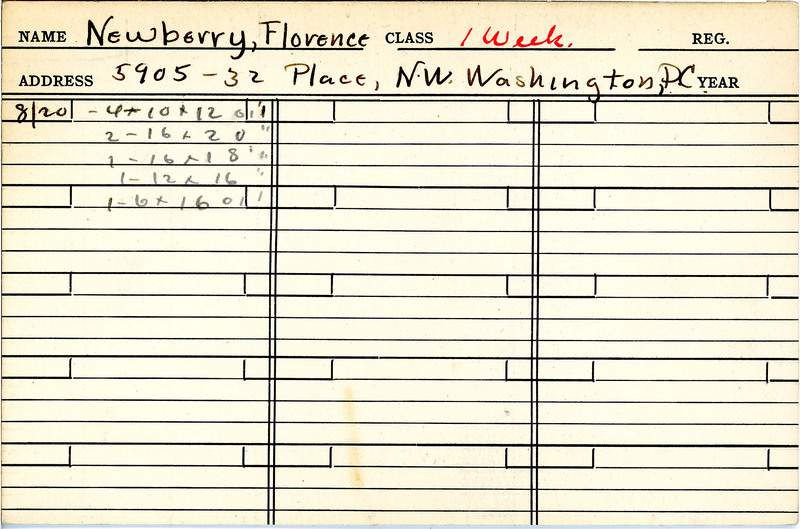 NAME Newberry, Florence CLASS 1 Week. REG.
ADDRESS 5905-32 Place, N.W. Washington, DC YEAR
8/20 - 4 x 10 x 12 oil "
2 - 16 x 20 "
1 - 16 x 18 "
1 - 12 x 16 "
1 - 6 x 16 oil "